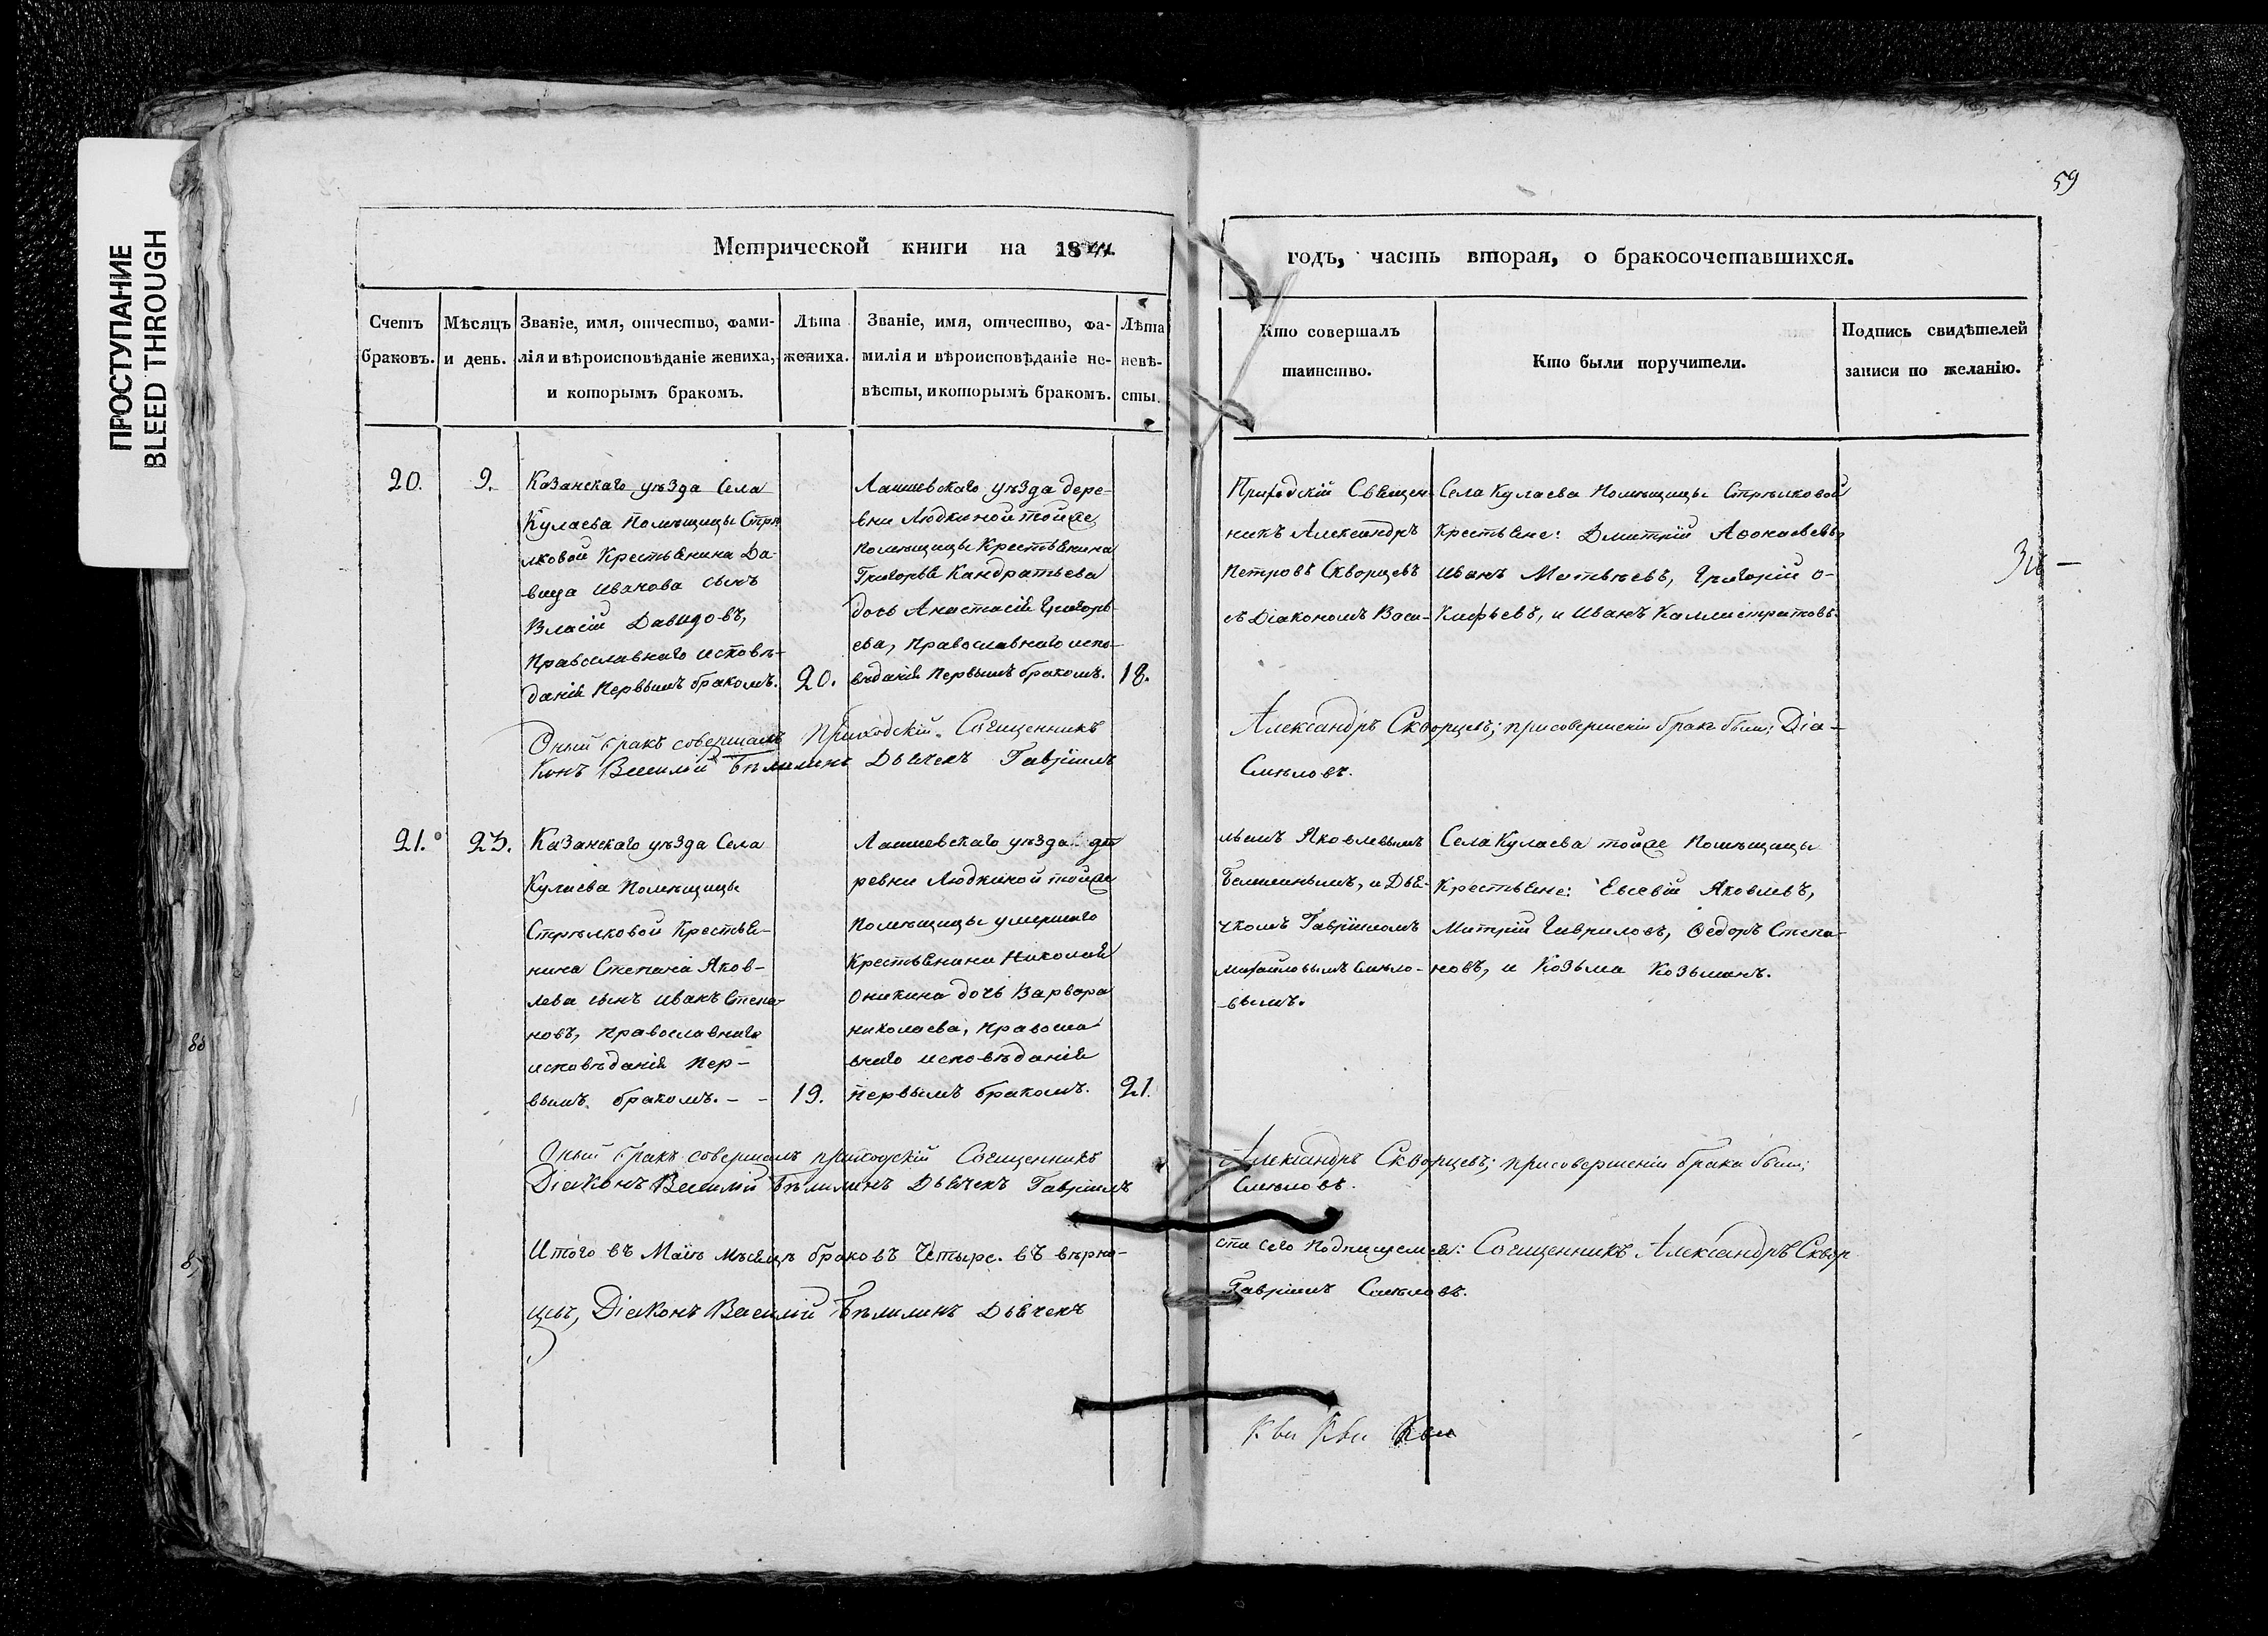 ПРОСТУПАНИЕ
BLEED THROUGH
59
Метрической книги на 1844
годъ, часть вторая, о бракосочетавшихся.
Счетъ
браковъ.
Мѣсяцъ
и день.
Званіе, имя, отчество, фами-
лія и вѣроисповѣданіе жениха,
и которымъ бракомъ.
Лѣта
жениха.
Званіе, имя, отчество, фа-
милія и вѣроисповѣданіе не-
вѣсты, и которымъ бракомъ.
Лѣта
невѣ-
сты.
Кто совершалъ
таинство.
Кто были поручители.
Подпись свидѣтелей
записи по желанію.
20.
9.
Казанскаго уѣзда Села
Кулаева Помѣщицы Стрѣ
лковой Крестьянина Да-
вида Иванова сынъ
Власій Давидовъ,
Православнаго исповѣ-
данія Первымъ бракомъ.
20.
Лаишевскаго уѣзда дере-
вни Людкиной тойже
помѣщицы Крестьянина
Григорья Кандратьева
дочь Анастасія Григорь-
ева, Православнаго испо-
вѣданія Первымъ бракомъ.
18.
Приходскій Священ-
никъ Александръ
Петровъ Скворцевъ
съ Діакономъ Васи-
Села Кулаева Помѣщицы Стрѣлковой
Крестьяне: Дмитрій Афонасьевъ,
Иванъ Матвѣевъ, Григорій О-
Кифьевъ, и Иванъ Каллистратовъ.
Оный бракъ совершалъ Приходскій Священникъ
Александръ Скворцевъ; при совершеніи брака были; Діа-
Конъ Василій Бѣлилинъ Дьячекъ Гавріилъ
Смѣловъ.
21.
23.
Казанскаго уѣзда Села
Кулаева Помѣщицы
Стрѣлковой Крестья-
нина Степана Яков-
лева сынъ Иванъ Степа-
новъ, Православнаго
исповѣданія Пер-
вымъ бракомъ. - -
19.
Лаишевскаго уѣзда де
ревни Людкиной тойже
Помѣщицы умершаго
Крестьянина Николая
Оникина дочь Варвара
Николаева, Правосла
внаго исповѣданія
Первымъ бракомъ.
21.
льемъ Яковлевымъ
Белилинымъ, и Дья-
чкомъ Гавріиломъ
Михайловымъ Смѣло-
-вымъ.
Села Кулаева тойже Помѣщицы
Крестьяне: Евсевій Яковлевъ,
Митрій Гавриловъ, Федоръ Степа-
новъ, и Козьма Козьминъ.
Оный бракъ совершалъ приходскій Священникъ
Александръ Скворцевъ; при совершеніи брака были;
Діаконъ Василій Бѣлилинъ Дьячекъ Гавріилъ
Смѣловъ.
Итого въ Маіѣ Мѣсяцѣ браковъ Четыре. въ вѣрно-
сти сего Подпишемся: Священникъ Александръ Сквор
цевъ, Діаконъ Василій Бѣлилинъ Дьячекъ
Гавріилъ Смѣловъ.